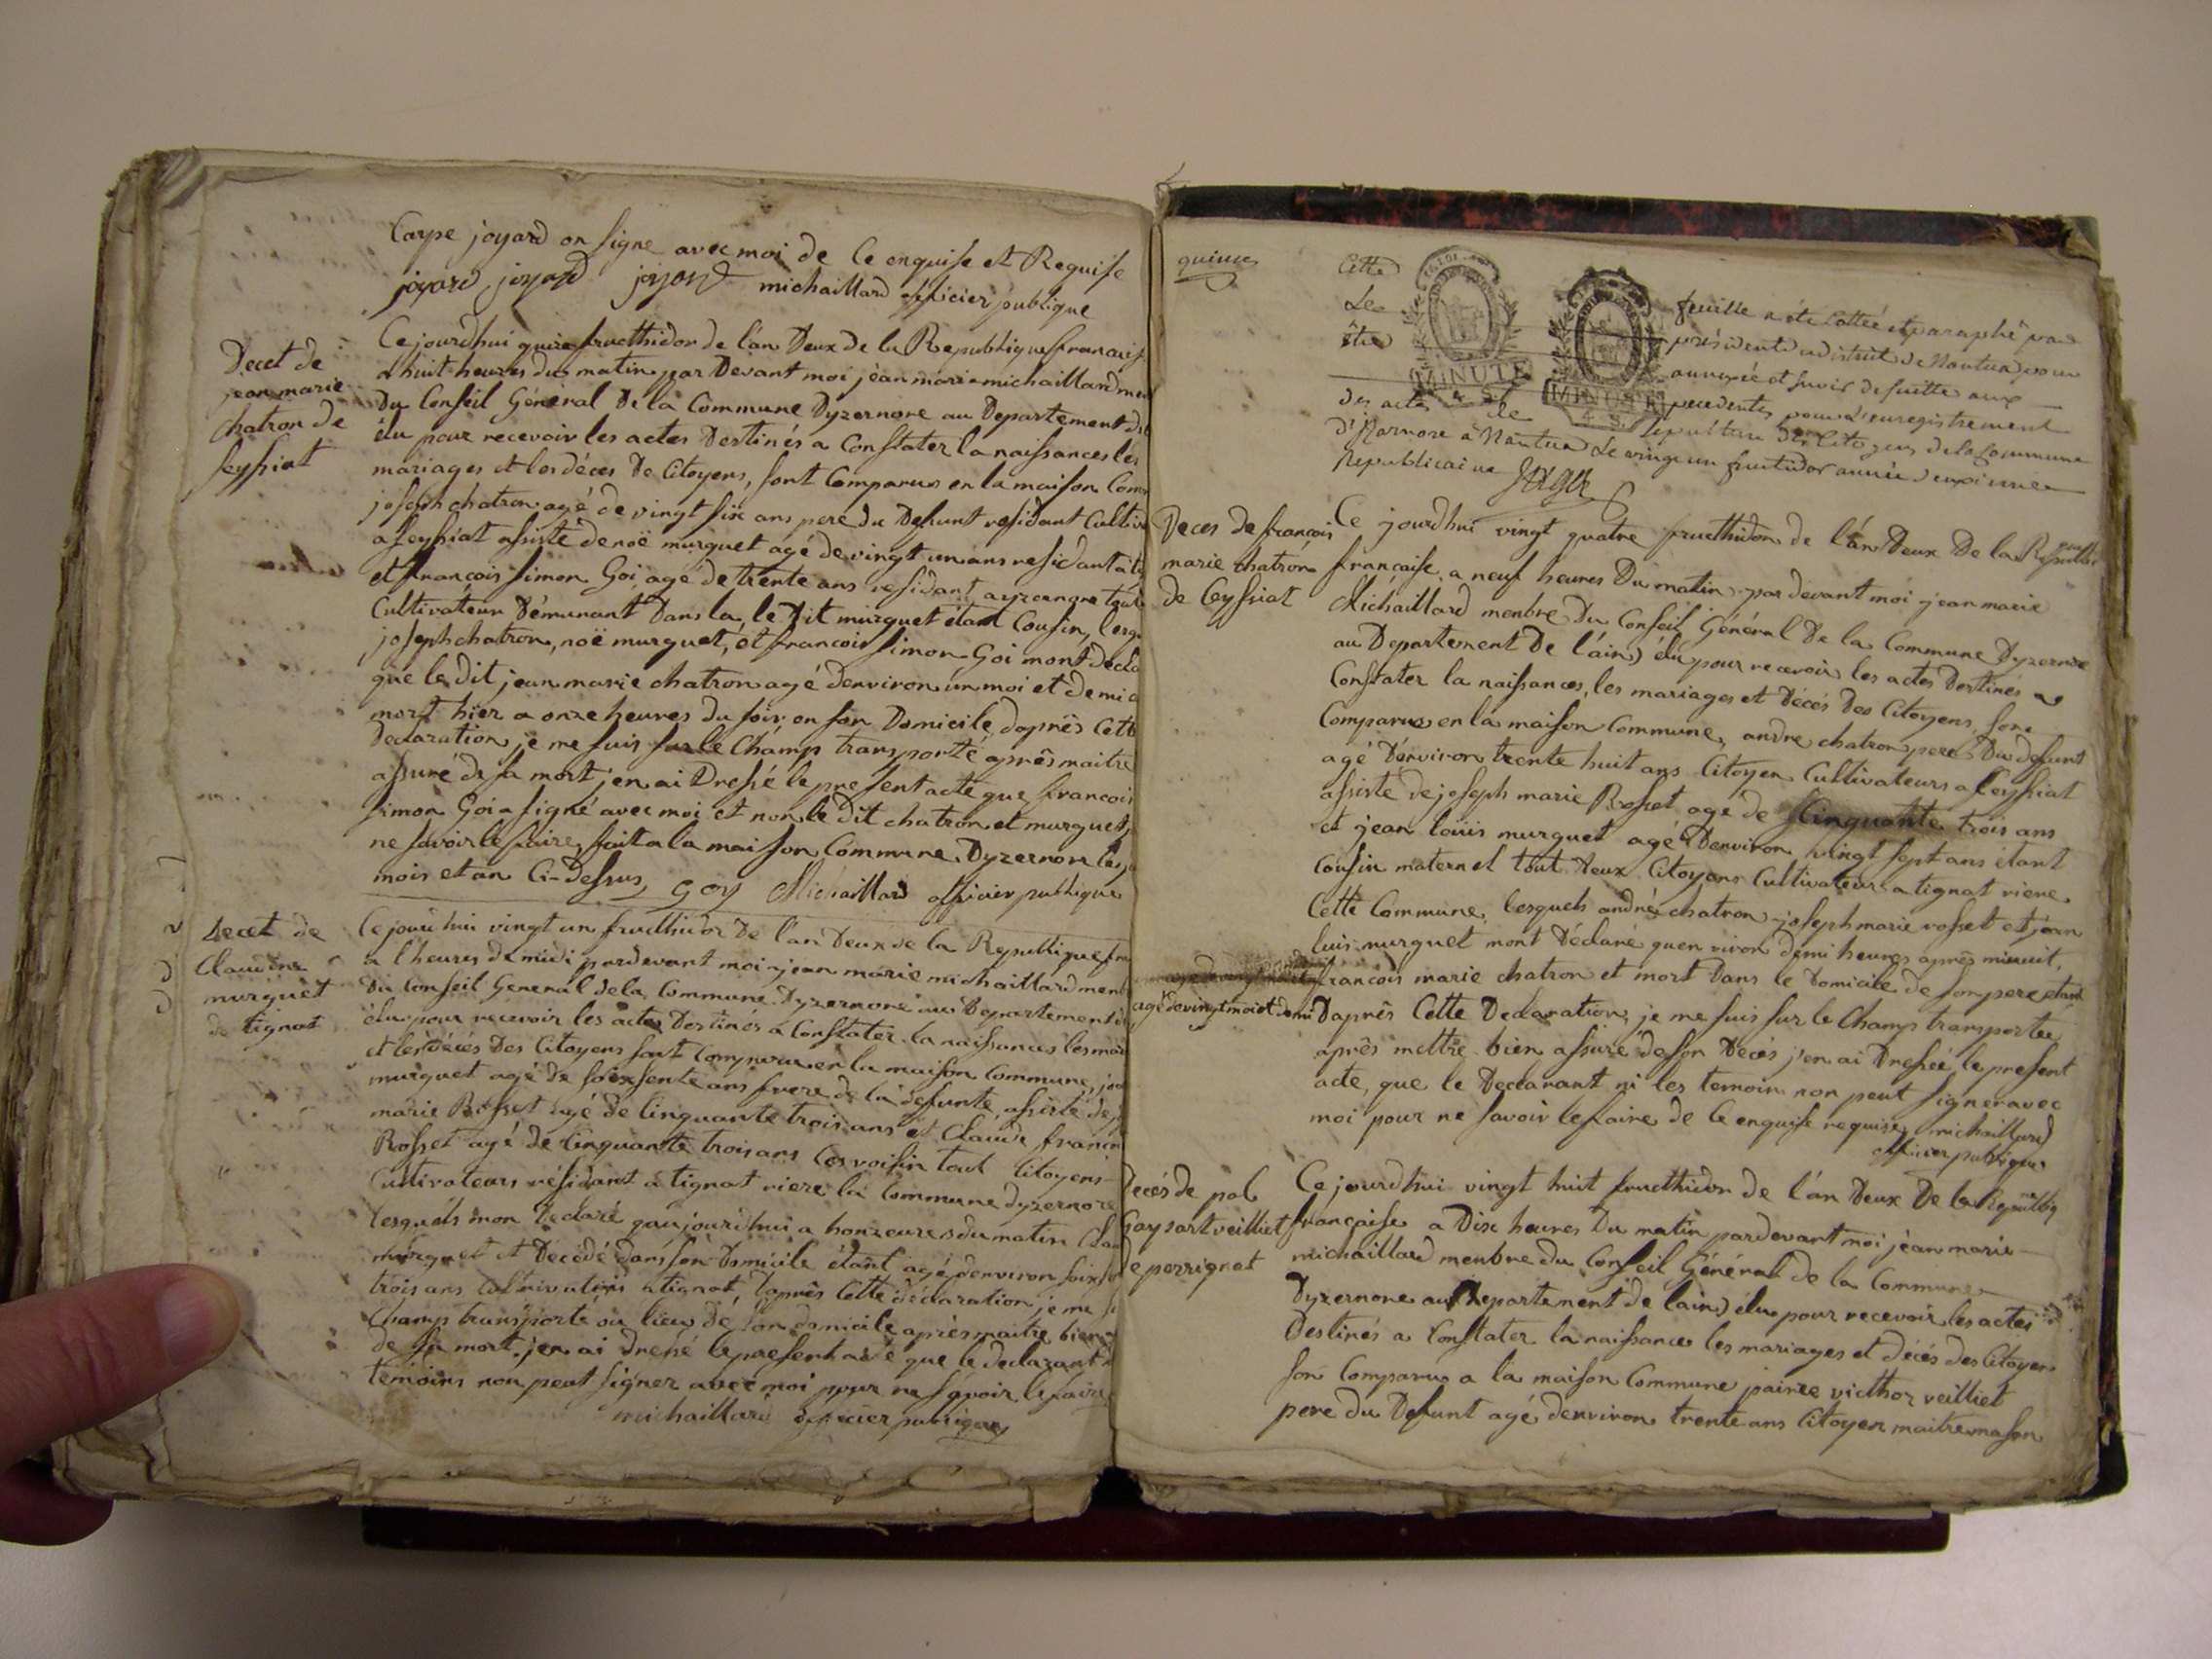 Carpe joyard on signe avec moi de Ce enquise et Requise
joyard joyard joyard michaillard officier publique
Decet de
jean marie
chatron de
seyssiat
Ce jourdhui quinze fructhidor de l'an Deux de la Republique francais
a huit heures du matin par Devant moi jean marie michaillard mem
Du Conseil Général De la Commune Dyzernore au Departement de
élu pour recevoir les actes Destinés a Constater la naissances les
mariages et les déces De Citoyens, sont Comparus en la maison Com
joseph chatron agé de vingt six ans pere du Defunt residant Cultiv
a seyssiat assisté de noë murguet agé de vingt un ans residant a ti
et francois simon Goi agé de trente ans residant ayzernore tous
Cultivateur Démurant Dans la, le Dit murguet étant Cousin, lesq
joseph chatron, noë murguet, et francois simon Goi mont décla
que le dit jean marie chatron agé denviron un moi et demi e
mort hier a onze heures du soir en son Domicile daprès Cette
Declaration je me suis sur le Champ transporté après maitre
assuré de sa mort jen ai Dressé le present acte que francois
simon Goi a signé avec moi et non le Dit chatron et murguet,
ne savoir le faire, fait a la maison Commune Dyzernore les j
mois et an Ci-dessus, goy Michaillard officier publique
Decet de
Claudine
murguet
de tignat
Ce jourdhui vingt un fructhidor De l'an Deux de la Republique fra
a l'heures de midi pardevant moi jean marie michaillard mem
Du Conseil General de la Commune Dyzernore au Departement de
élu pour recevoir les actes Destinés a Constater la naissances les mar
et les décès Des Citoyens sont Comparus en la maison Commune, jo
murguet agé de soixsente ans frere de la defunte, assisté de j
marie Rosset agé de Cinquante trois ans et Claude francoi
Rosset agé de Cinquante trois ans Ces voisin tout Citoyens
Cultivateurs résidant a tignat riere la Commune dyzernore
lesquels mon declaré qaujourdhui a honzeures du matin Clau
murguet et Decédé dans son Domicile étant agé denviron soixs
trois ans Cultivateurs a tignat, daprès Cette déclaration je me s
Champ transporté au lieu de son domicile après maitre bien
de sa mort jen ai dressé le present acte que le declarant
temoins non peut signer avec moi pour ne sçavoir le faire
michaillard officier publique
quinze
Cette feuille a été Cottée et paraphé par
Le président du district de Nantua pour
être annexée et servir de suitte aux
precedentes pour l'enregistrement
des actes de sepulture des Citoyens de la Commune
d'Yzernore a Nantua le vingt un fructidor année deuxieme
Republicaine
Deces de francois
marie chatron
de Ceyssiat
Ce jourdhui vingt quatre fructhidor de l'án Deux De la Republique
francaise, a neuf heures Du matin pardevant moi jean marie
Michaillard menbre Du Conseil Général De la Commune Dyzernore
au Departement De l'ain élu pour recevoir les actes Destinés a
Constater la naissances, les mariages et Décés Des Citoyens, sont
Comparus en la maison Commune, andre chatron pere Du defunt
agé Denviron trente huit ans Citoyen Cultivateurs a Ceyssiat
assisté de joseph marie Rosset agé de Cinquante trois ans
et jean loüis murguet agé Denviron vingt sept ans étant
Cousin maternel tout deux Citoyens Cultivateurs a tignat riere
Cette Commune, lesquels andré chatron joseph marie rosset et jean
luis murguet mont Déclaré quen viron demi heures après minuit,
francois marie chatron et mort Dans le Domicile de son pere étant
agé de vingt moi et demi Daprès Cette Declaration, je me suis sur le Champ transportée
après mettre bien assuré de son Décès j'en ai Dressée le present
acte, que le Declarant ni les temoin non peut signer avec
moi pour ne savoir le faire de Ce enquise requise, michaillard
officier publique
Decés de pol
Gaspart veilliet
de perrignat
Ce jourdhui vingt huit fructhidor de l'án Deux De la Republiq
française a Dix heures Du matin pardevant moi jean marie
michaillard menbre du Conseil Général de la Commune
Dyzernore au Departement de lain élu pour recevoir les actes
Destinés a Constater la naissances les mariages et décés des Citoyens
son Comparus a la maison Commune pairre victhor veilliet
pere Du Defunt agé denviron trente ans Citoyen maitre mason
MINUTE
4 S
MINUTE
4 S